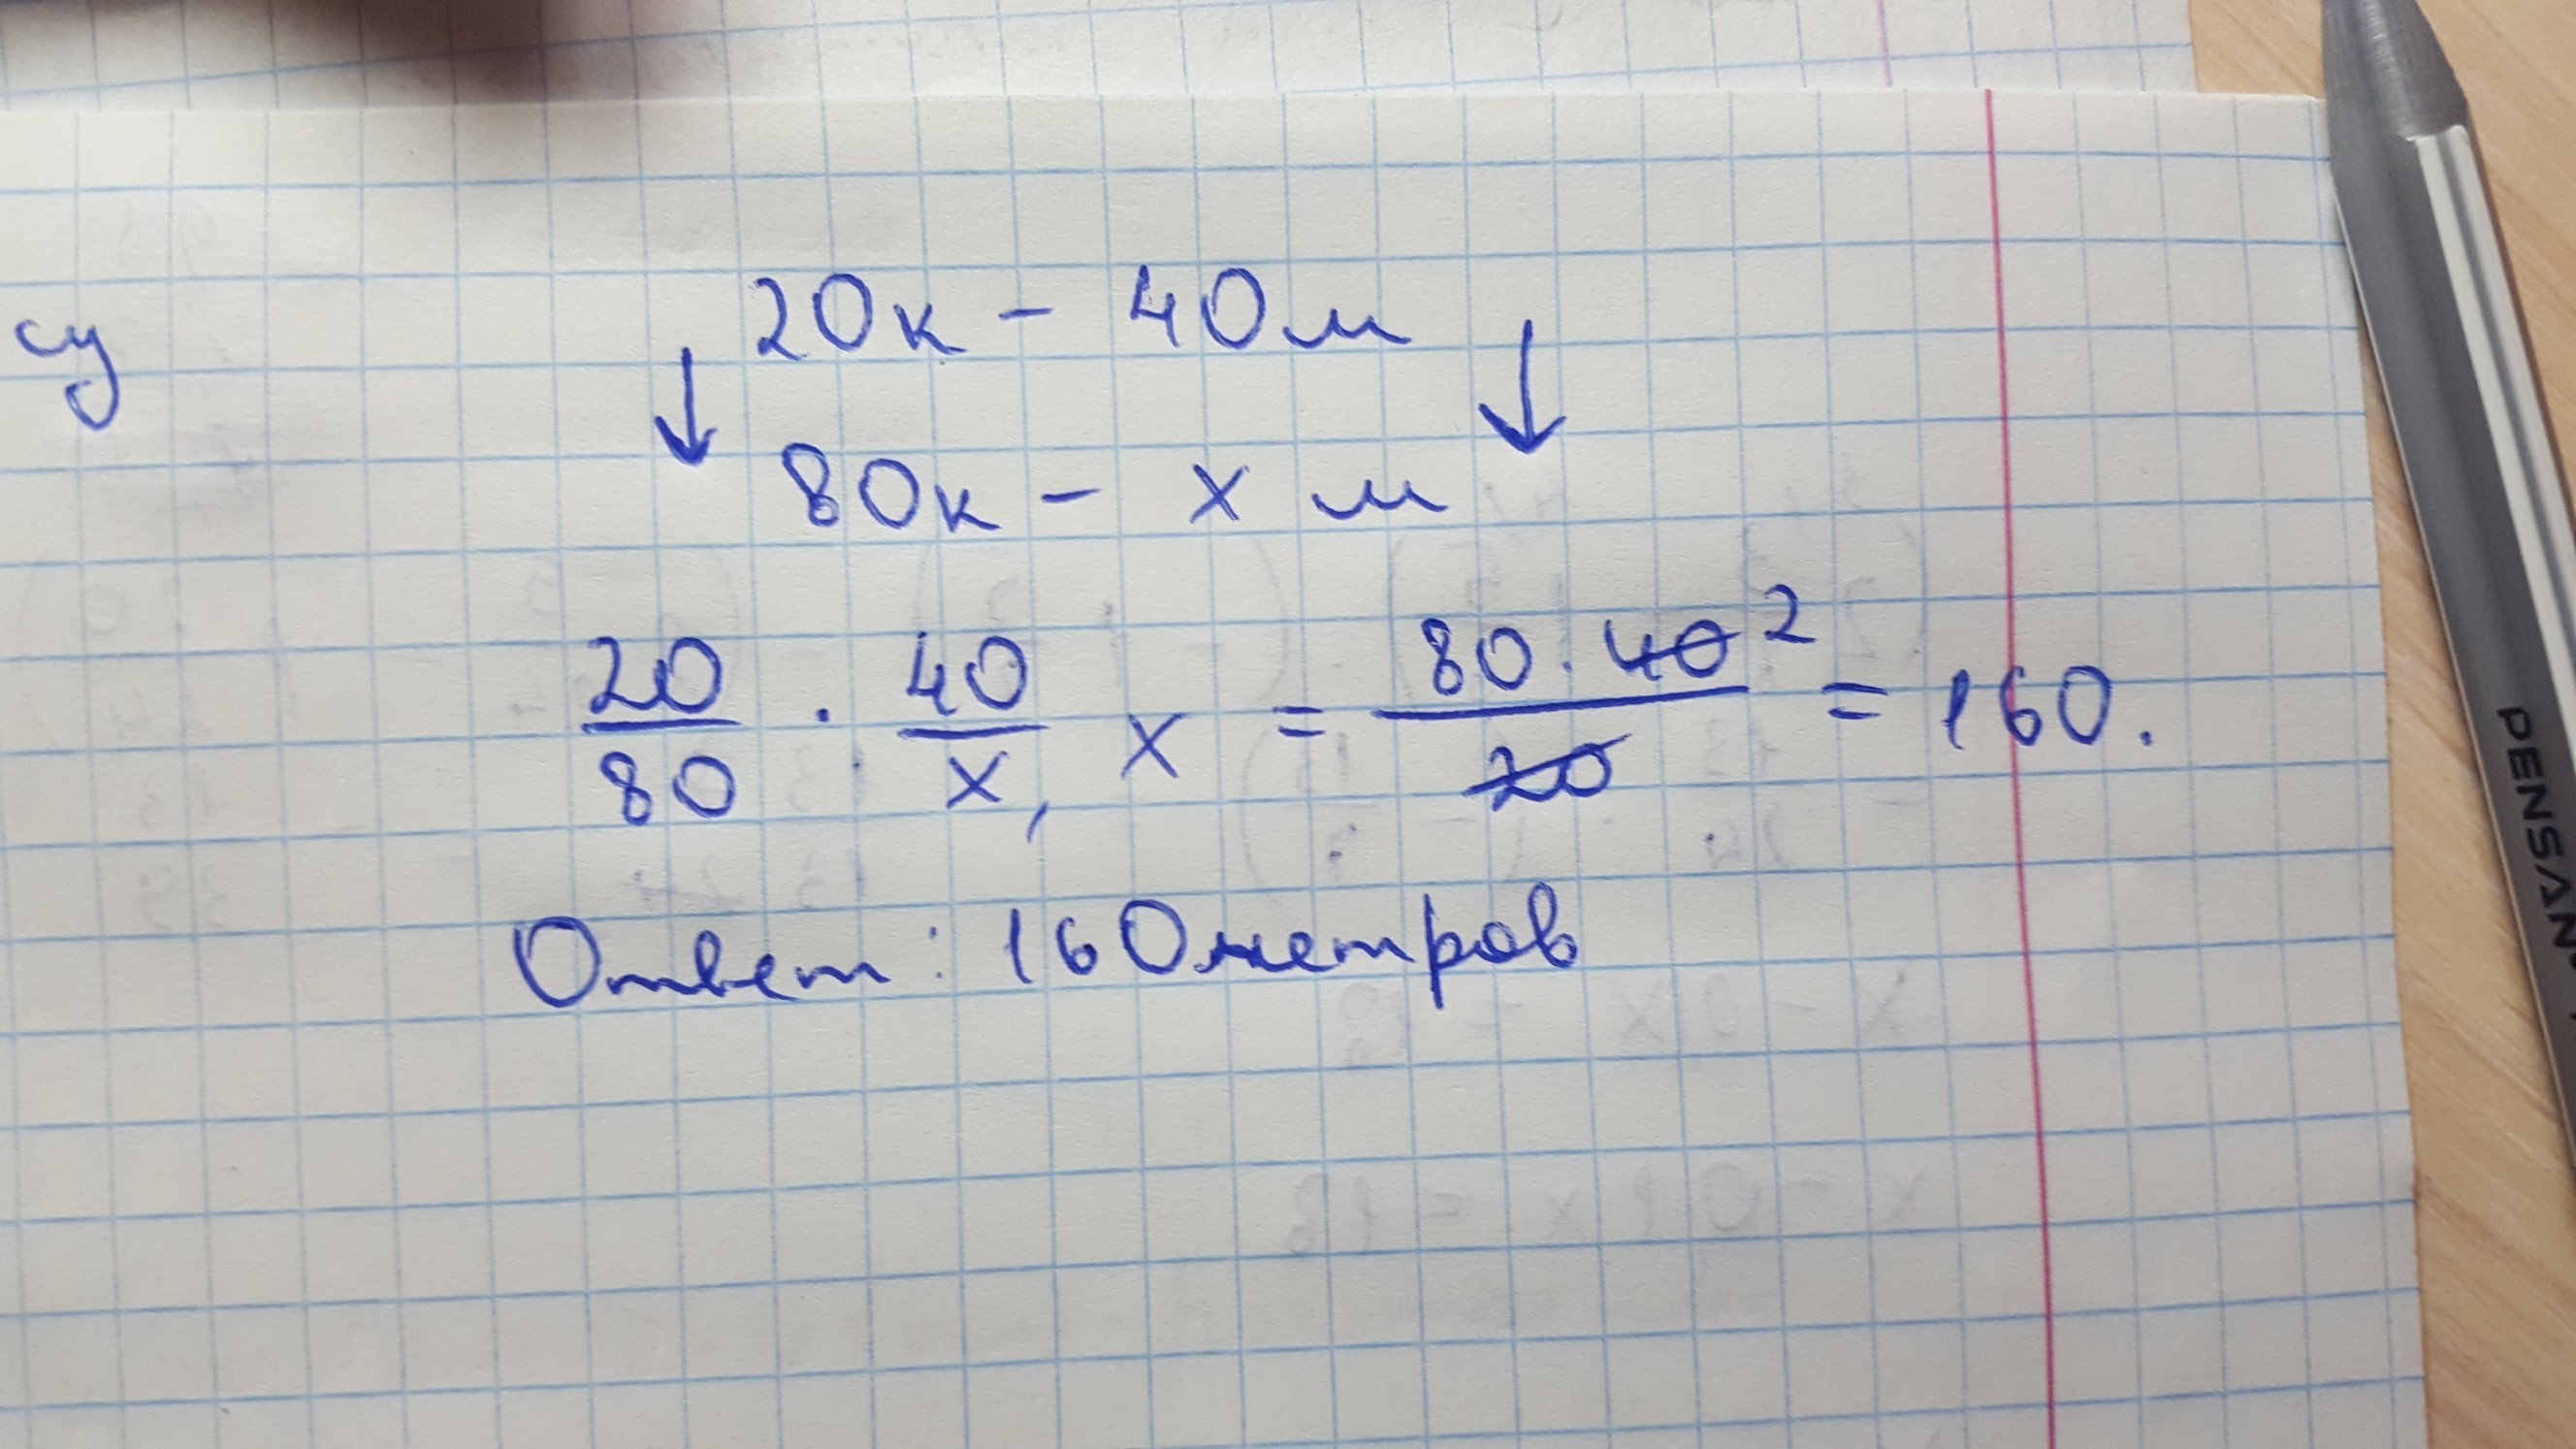 су
20к - 40м
↓ ↓
80к - x м
20/80 · 40/x, x = 80·40 2/20 = 160.
Ответ: 160метров
PENSAN